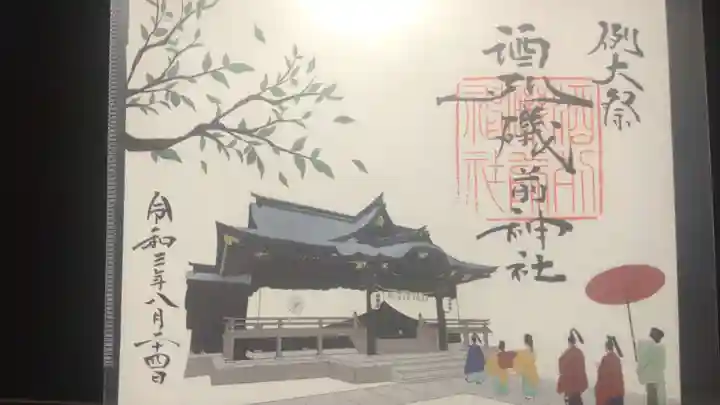 例大祭
酒列磯前神社
令和三年八月二十四日